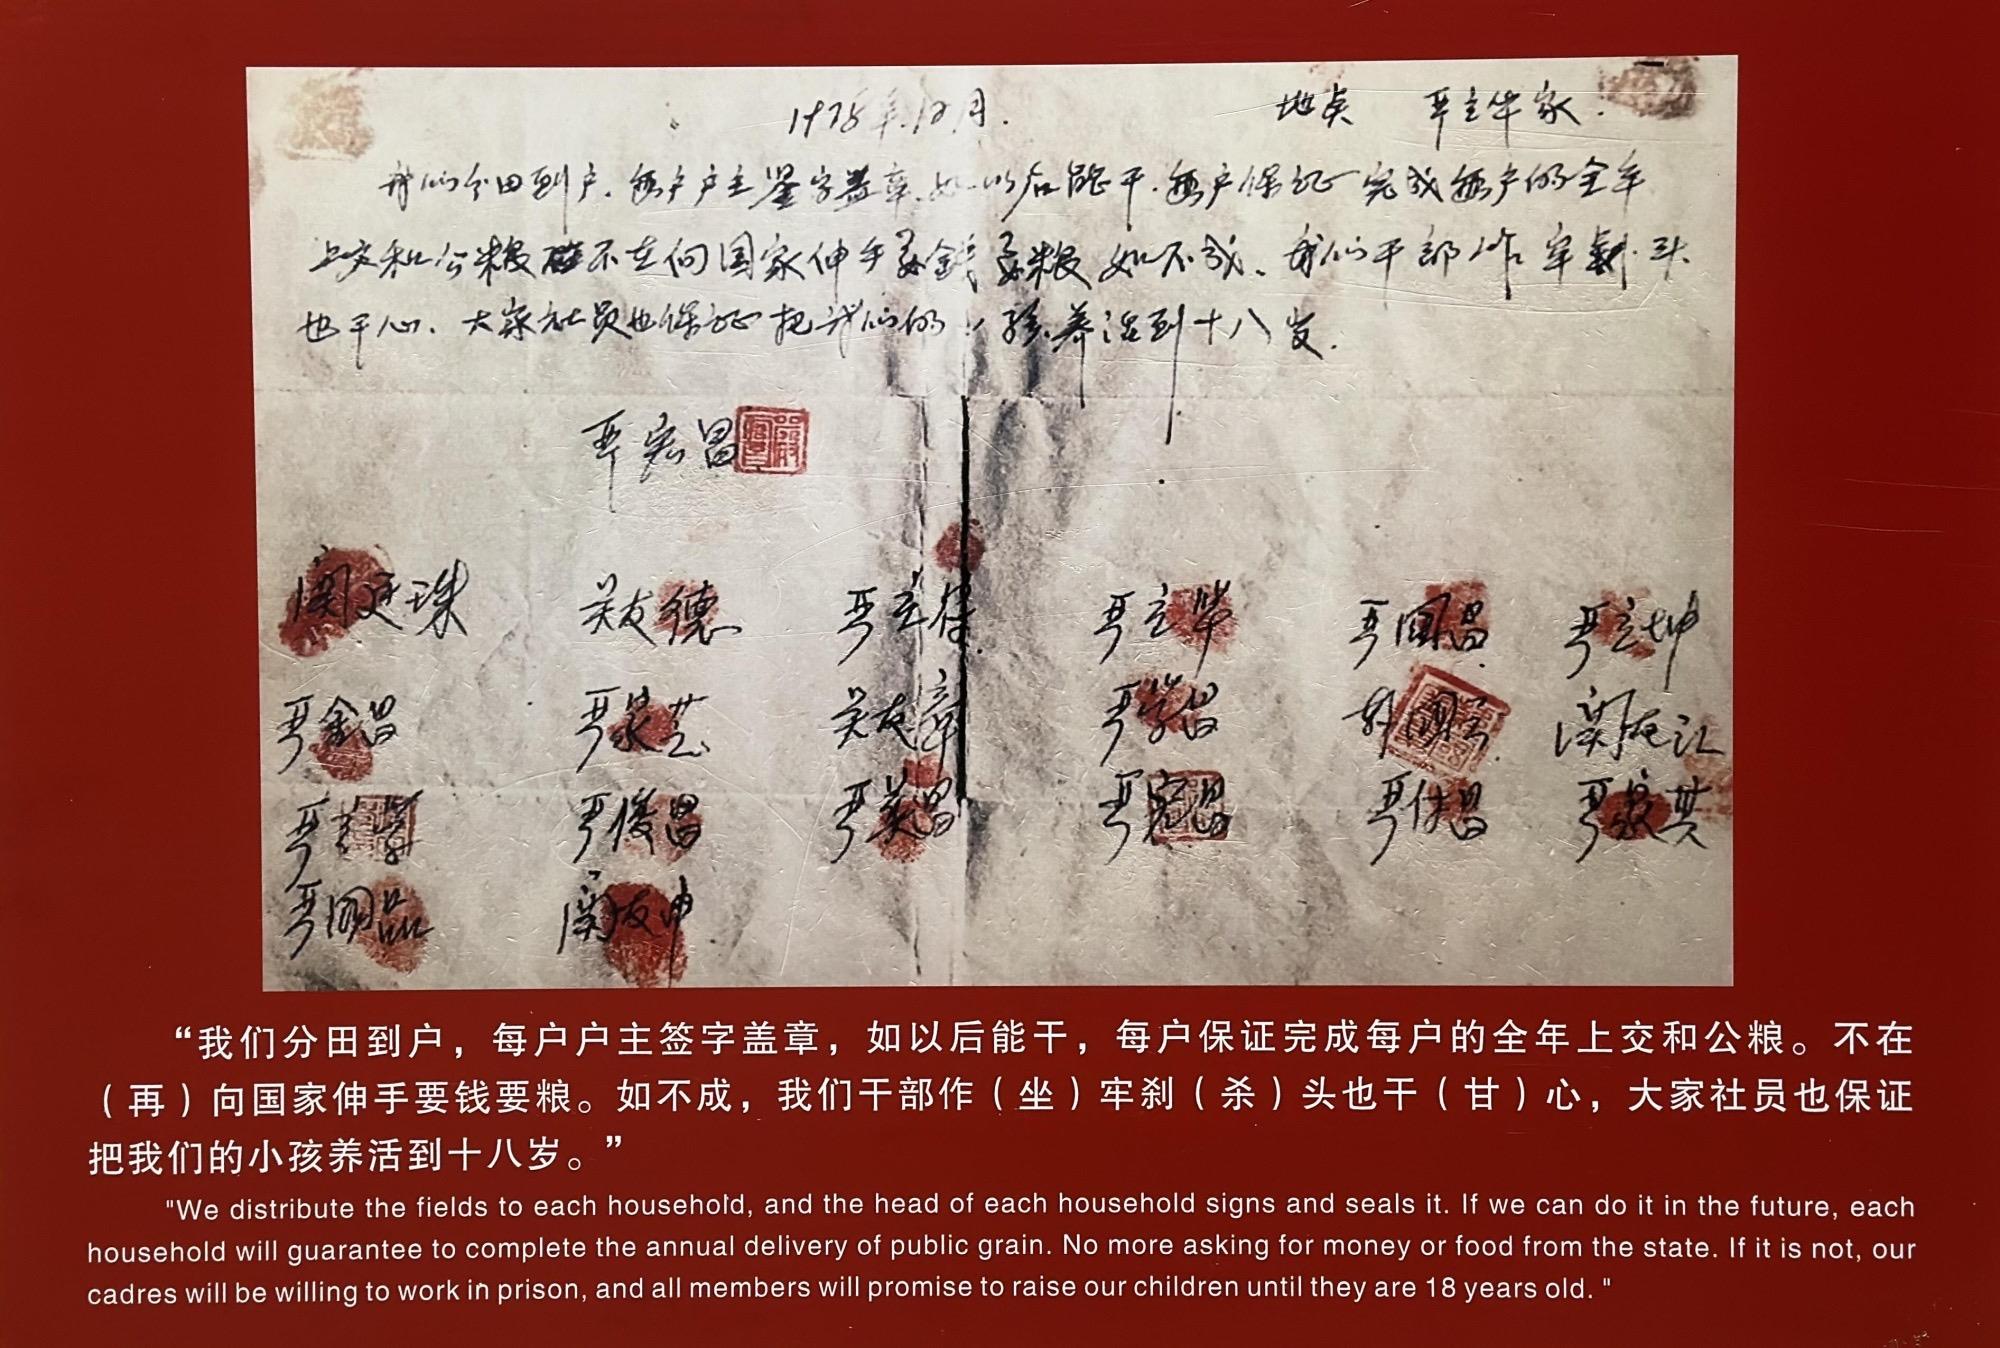 1978年12月.　地点　严立华家.
我们分田到户.每户户主鉴字盖章.如以后能干.每户保证完成每户的全年
上交和公粮 不在向国家伸手要钱要粮如不成.我们干部作牢刹头
也干心.大家社员也保证把我们的小孩养活到十八岁.
严宏昌
关廷珠　关友德　严立符　严立华　严国昌　严立坤
严金昌　严家芝　关友章　严学昌　韩国云　关友江
严立学　严俊昌　严美昌　严宏昌　严付昌　严家其
严国品　关友申
“我们分田到户，每户户主签字盖章，如以后能干，每户保证完成每户的全年上交和公粮。不在
（再）向国家伸手要钱要粮。如不成，我们干部作（坐）牢刹（杀）头也干（甘）心，大家社员也保证
把我们的小孩养活到十八岁。”
"We distribute the fields to each household, and the head of each household signs and seals it. If we can do it in the future, each
household will guarantee to complete the annual delivery of public grain. No more asking for money or food from the state. If it is not, our
cadres will be willing to work in prison, and all members will promise to raise our children until they are 18 years old. "